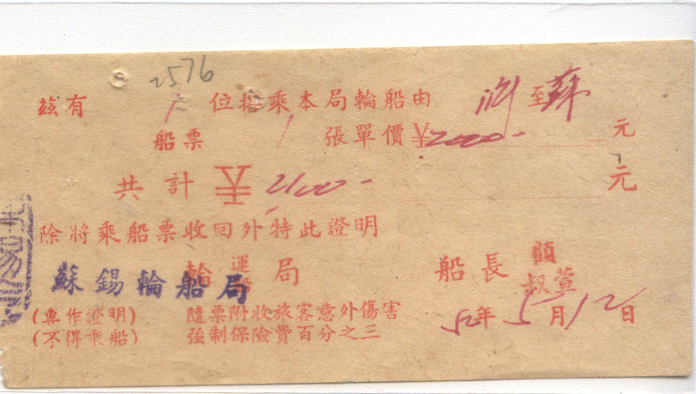 2576
玆有 1 位搭乘本局輪船由 至蘇
船票 1 張單價¥2000- 元
共計 2100- 元
除將乘船票收回外特此證明
輪運局 船長 顧叔萱
蘇錫輪船局
(專作證明) 隨票附收旅客意外傷害
(不得乘船) 強制保險費百分之三
52年5月12日